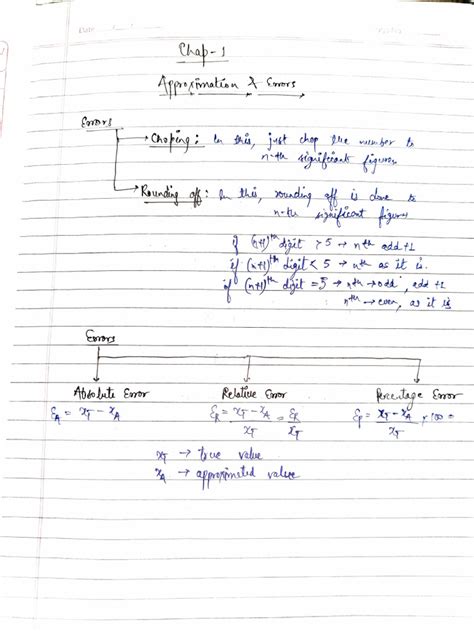 Date
Chap-1
Approximation & Errors
Errors
→ Choping : In this, just chop the number to
n-th significant figures
→ Rounding off : In this, rounding off is done to
n-th significant figures
if (n+1)th digit > 5 → nth add +1
if (n+1)th digit < 5 → nth as it is.
if (n+1)th digit = 5 → nth → odd, add +1
nth → even, as it is
Errors
Absolute Error Relative Error Percentage Error
ε_A = x_T - x_A ε_R = (x_T - x_A)/x_T = ε_R/x_T ε_P = (x_T - x_A)/x_T × 100 =
x_T → true value
x_A → approximated value